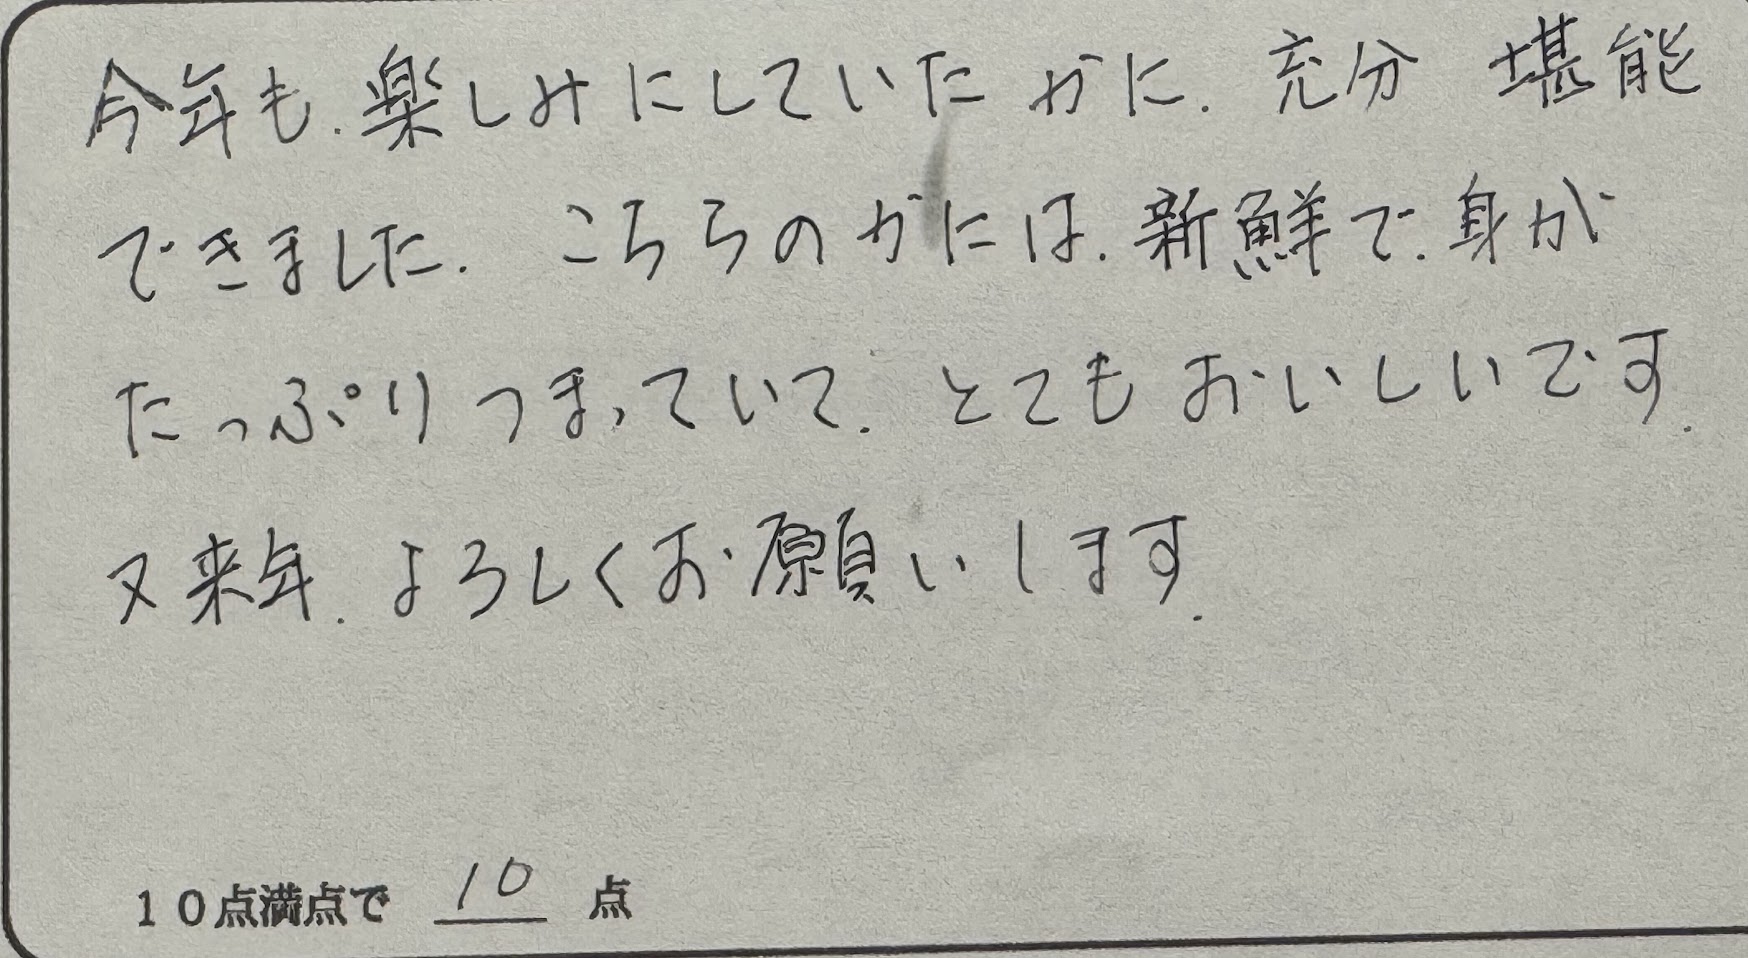 今年も、楽しみにしていたかに、充分 堪能
できました。 こちらのかには、新鮮で、身が
たっぷりつまっていて、とてもおいしいです。
又来年、よろしくお願いします。
10点満点で 10 点